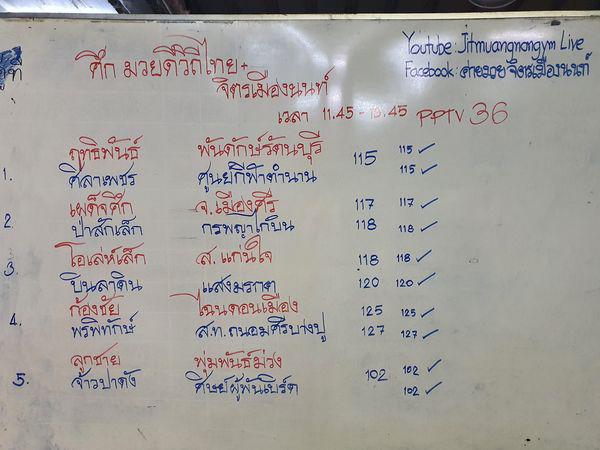 Youtube: Jitmuangnongym Live
ศึก มวยดีวิถีไทย+
Facebook: ค่ายมวยจิตรเมืองนนท์
จิตรเมืองนนท์
เวลา 11.45 - 13.45 PPTV 36
ฤทธิพันธ์ พันดักษ์รัตนบุรี 115 115 ✓
1. ศิลาเพชร ศูนย์กีฬาตำนาน 115 ✓
เผด็จศึก จ.เมืองศรี 117 117 ✓
2. ป่าสักเล็ก กรพญาไกบิน 118 118 ✓
โอเล่ห์เล็ก ส.แก่นใจ 118 118 ✓
3. บินลาดิน แสงมรกต 120 120 ✓
ก้องชัย ไฉนดอนเมือง 125 125 ✓
4. พริพิทักษ์ ส.ท.ถนอมศรีบางปู 127 127 ✓
ลูกชาย พุ่มพันธ์ม่วง 102 102 ✓
5. จ้าวปาตัง ศิษย์ผู้พันเบิร์ด 102 ✓